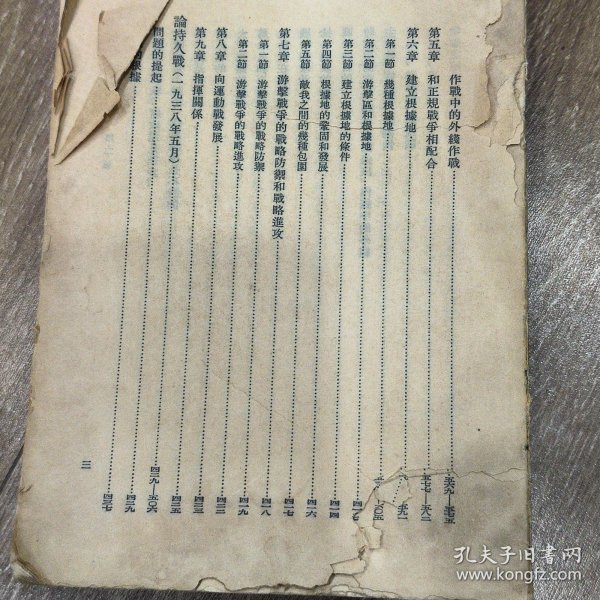 作戰中的外綫作戰
第五章 和正規戰爭相配合
第六章 建立根據地
第一節 幾種根據地
第二節 游擊區和根據地
第三節 建立根據地的條件
第四節 根據地的鞏固和發展
第五節 敵我之間的幾種包圍
第七章 游擊戰爭的戰略防禦和戰略進攻
第一節 游擊戰爭的戰略防禦
第二節 游擊戰爭的戰略進攻
第八章 向運動戰發展
第九章 指揮關係
論持久戰(一九三八年五月)
問題的提起
根據
四一四
四一六
四一七
四一八
四一九
四二二
四二五
四二九—五〇六
四二九
四三七
三
孔夫子旧书网
www.kongfz.com